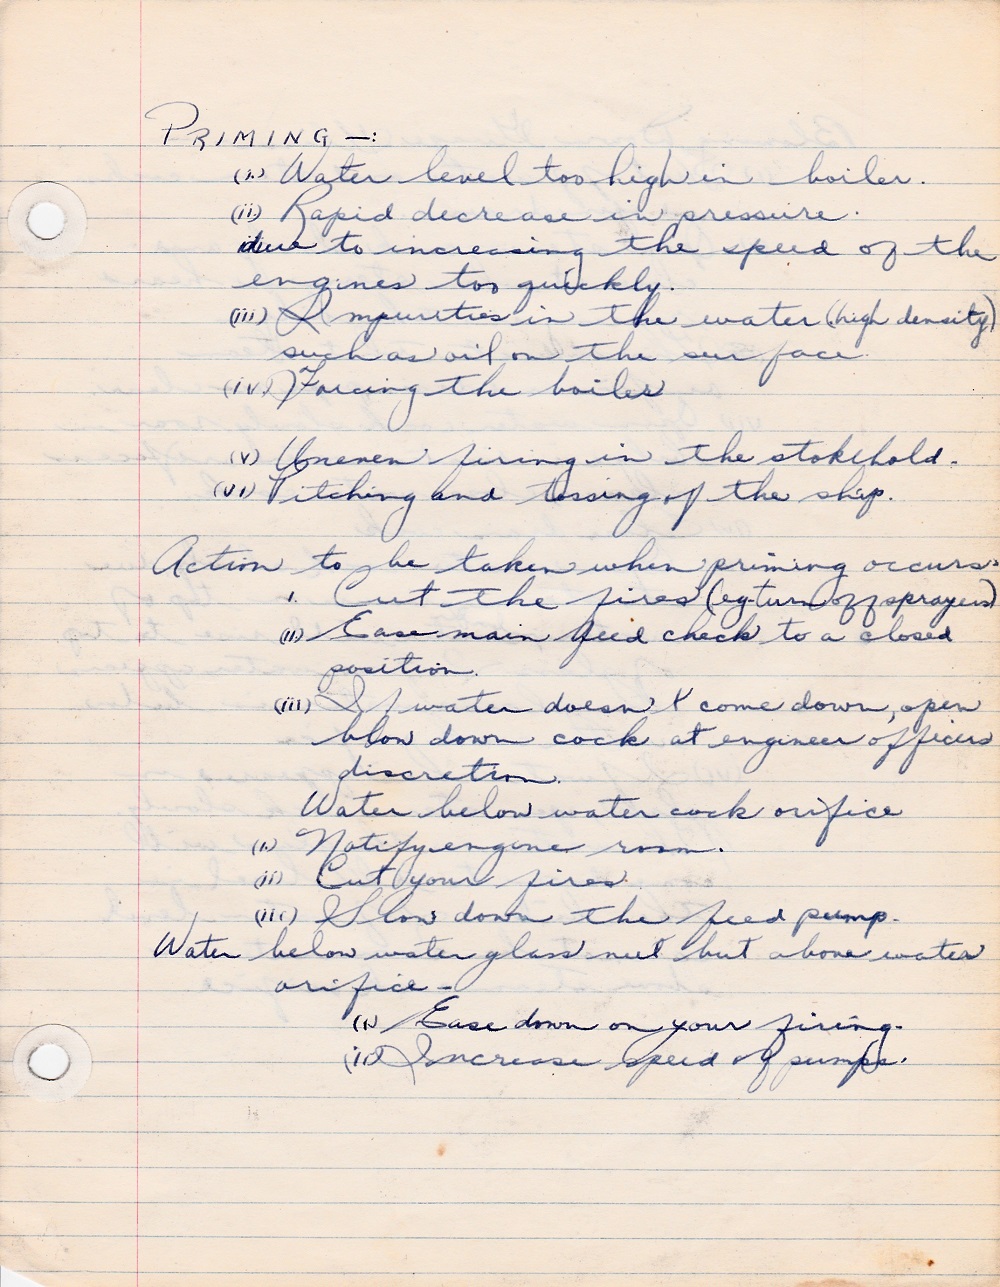 PRIMING —:
(i.) Water level too high in boiler.
(ii) Rapid decrease in pressure.
due to increasing the speed of the
engines too quickly.
(iii) Impurities in the water (high density)
such as oil on the surface.
(iv) Forcing the boiler
(v) Uneven firing in the stokehold.
(vi) Pitching and tossing of the ship.
Action to be taken when priming occurs:
i. Cut the fires (eg-turn off sprayers)
(ii) Ease main feed check to a closed
position.
(iii) If water doesn't come down, open
blow down cock at engineer officers
discretion.
Water below water cock orifice
(i.) Notify engine room.
(ii) Cut your fires.
(iii) Slow down the feed pump.
Water below water glass nut but above water
orifice -
(i) Ease down on your firing.
(ii) Increase speed of pumps.